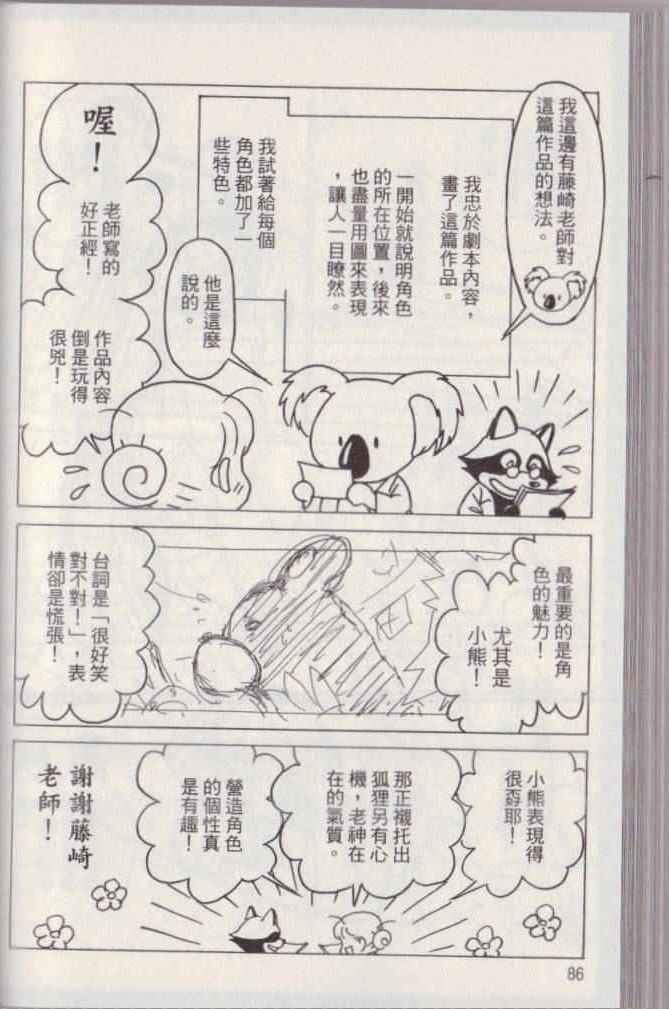 我這邊有藤崎老師對
這篇作品的想法。
我忠於劇本內容，
畫了這篇作品。
一開始就說明角色
的所在位置，後來
也盡量用圖來表現
，讓人一目瞭然。
我試著給每個
角色都加了一
些特色。
他是這麼
說的。
喔！
老師寫的
好正經！
作品內容
倒是玩得
很兇！
最重要的是角
色的魅力！
尤其是
小熊！
台詞是「很好笑
對不對！」，表
情卻是慌張！
小熊表現得
很孬耶！
那正襯托出
狐狸另有心
機，老神在
在的氣質。
營造角色
的個性真
是有趣！
謝謝藤崎
老師！
86